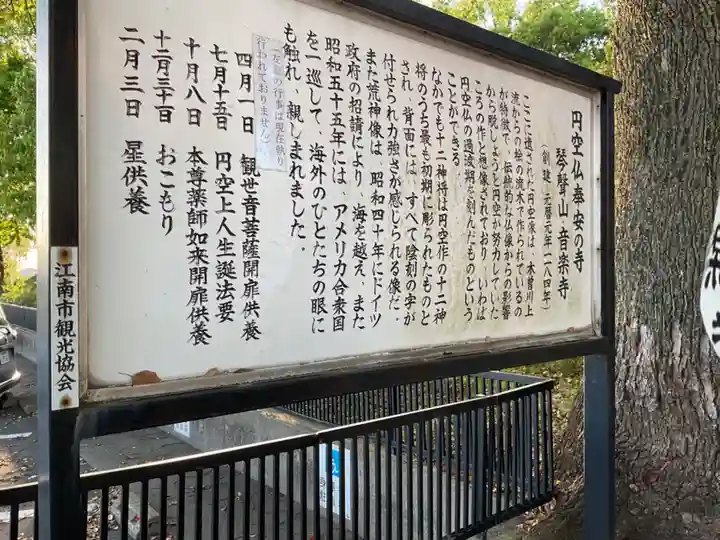 円空仏奉安の寺
琴聲山 音楽寺
(創建 元暦元年一一八四年)
ここに遺された円空像は、木曽川上
流からの桧の流木で作られているの
が特徴で、伝統的な仏像からの影響
から脱しようと円空が努力していた
ころの作と想像されており、いわば
円空仏の過渡期を刻んだものという
ことができる。
なかでも十二神将は円空作の十二神
将のうち最も初期に彫られたものと
され、背面には、すべて陰刻の字が
付せられ力強さが感じられる像だ。
また荒神像は、昭和四十年にドイツ
政府の招請により、海を越え、また
昭和五十五年には、アメリカ合衆国
を一巡して、海外のひとたちの眼に
も触れ、親しまれました。
左記の行事は現在執り
行われておりません。
四月一日 観世音菩薩開扉供養
七月十五日 円空上人生誕法要
十月八日 本尊薬師如来開扉供養
十二月三十日 おこもり
二月三日 星供養
江南市観光協会